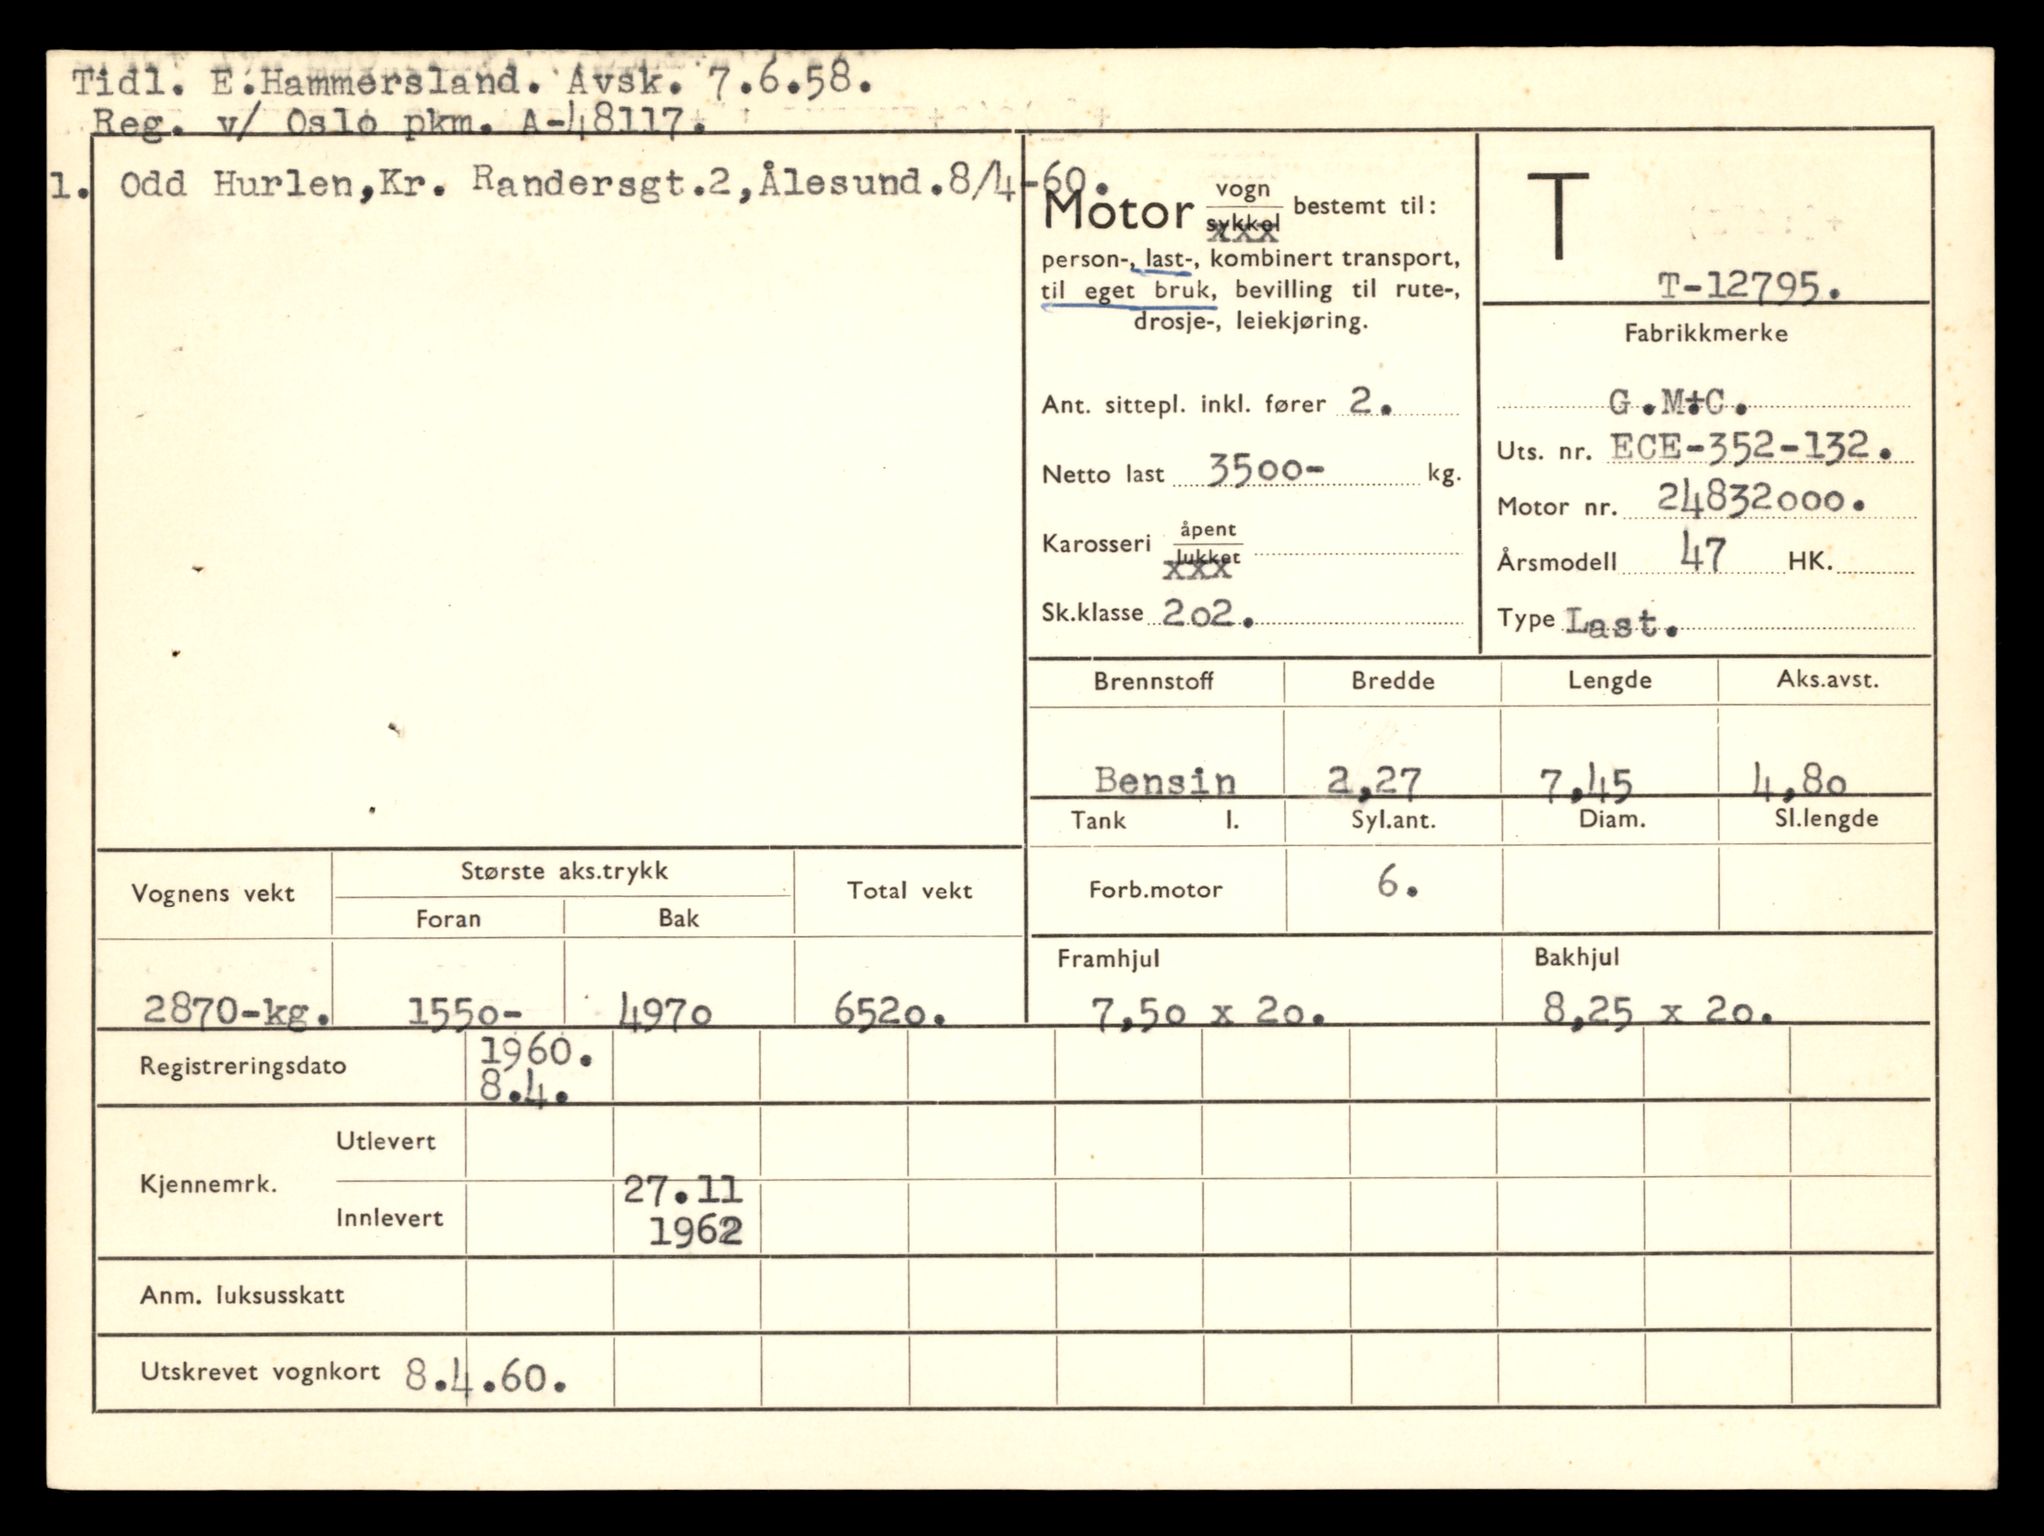 Tidl. E.Hammersland. Avsk. 7.6.58.
Reg. v/ Oslo pkm. A-48117.
1. Odd Hurlen,Kr. Randersgt.2,Ålesund.8/4-60.
Motor vogn
sykkel
xxx
bestemt til:
person-, last-, kombinert transport,
til eget bruk, bevilling til rute-,
drosje-, leiekjøring.
Ant. sittepl. inkl. fører 2.
Netto last 3500- kg.
Karosseri åpent
lukket
xxx
Sk.klasse 202.
T
T-12795.
Fabrikkmerke
G.M.C.
Uts. nr. ECE-352-132.
Motor nr. 24832000.
Årsmodell 47 HK.
Type Last.
Brennstoff Bredde Lengde Aks.avst.
Bensin 2,27 7,45 4,80
Tank l. Syl.ant. Diam. Sl.lengde
Forb.motor 6.
Framhjul Bakhjul
7,50 x 20. 8,25 x 20.
Vognens vekt Største aks.trykk Total vekt
Foran Bak
2870-kg. 1550- 4970 6520.
Registreringsdato 1960.
8.4.
Kjennemrk. Utlevert
Innlevert 27.11
1962
Anm. luksusskatt
Utskrevet vognkort 8.4.60.